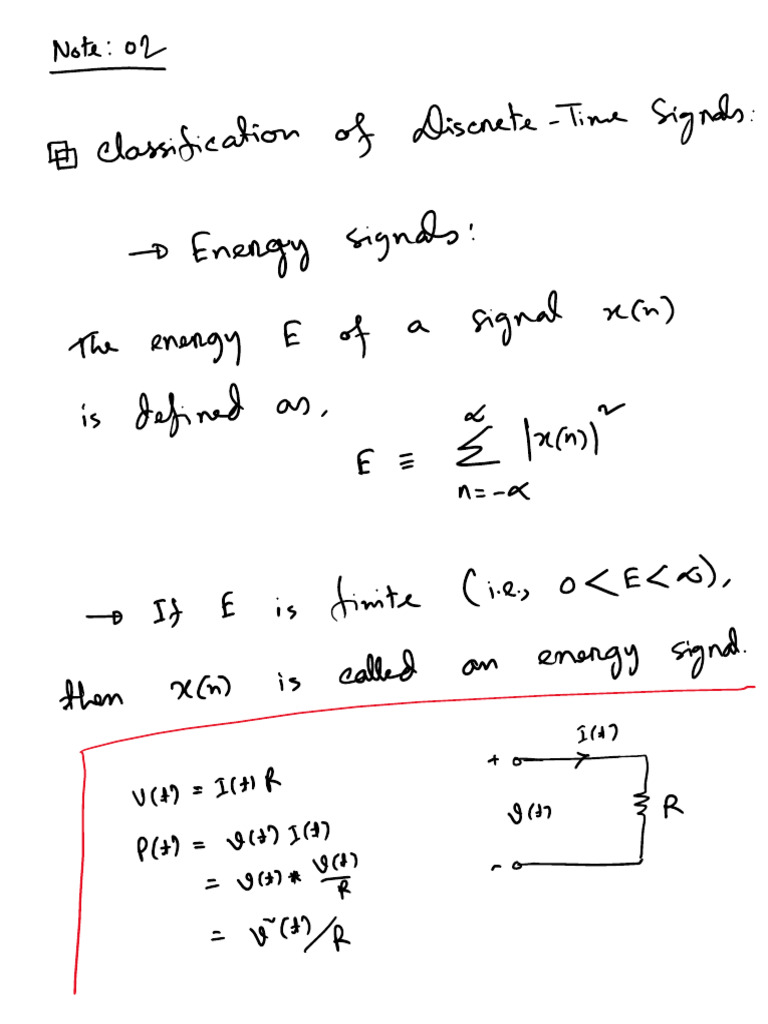 Note: 02
Classification of Discrete-Time Signals:
→ Energy signals:
The energy E of a signal x(n)
is defined as,
E ≡ ∑_{n=-∝}^{∝} |x(n)|²
→ If E is finite (i.e., 0<E<∞),
then x(n) is called an energy signal.
V(t) = I(t) R
P(t) = V(t) I(t)
= V(t) * V(t)/R
= V²(t)/R
I(t)
+
V(t)
R
-